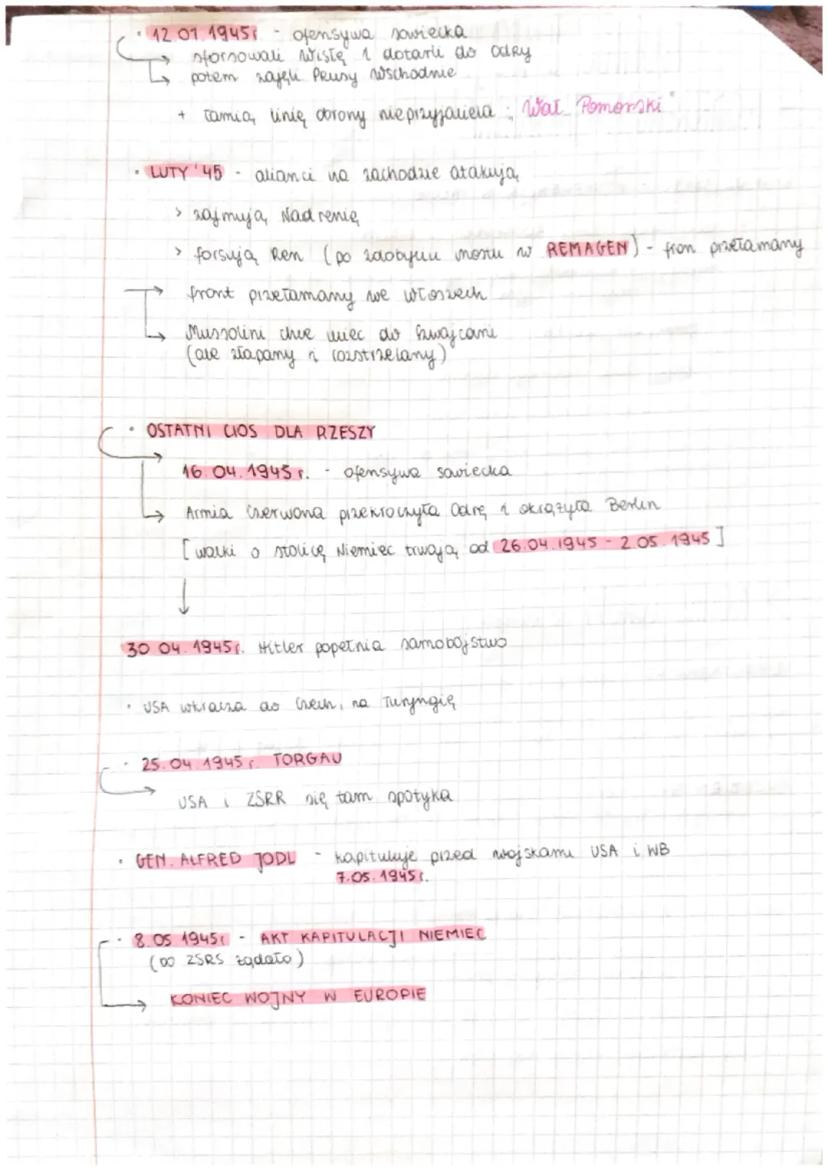 • 12.01.1945r. - ofensywa sowiecka
→ sforsowali Wisłę i dotarli do Odry
↳ potem zajęli Prusy Wschodnie
+ łamią linię obrony nieprzyjaciela : "Wał Pomorski"
• LUTY '45 - alianci na zachodzie atakują
> zajmują Nadrenię
> forsują Ren (po zdobyciu mostu w REMAGEN) - fron przełamany
→ front przełamany we Włoszech
↳ Mussolini chce uciec do Szwajcarii
(ale złapany i rozstrzelany)
• OSTATNI CIOS DLA RZESZY
→ 16.04.1945r. - ofensywa sowiecka
↳ Armia Czerwona przekroczyła Odrę i okrążyła Berlin
[walki o stolicę Niemiec trwają od 26.04.1945 - 2.05.1945]
↓
30.04.1945r. Hitler popełnia samobójstwo
• USA wkracza do Czech, na Turyngię
• 25.04.1945r. TORGAU
→ USA i ZSRR się tam spotyka
• GEN. ALFRED JODL - kapituluje przed wojskami USA i WB
7.05.1945r.
• 8.05.1945r - AKT KAPITULACJI NIEMIEC
(bo ZSRS żądało)
→ KONIEC WOJNY W EUROPIE